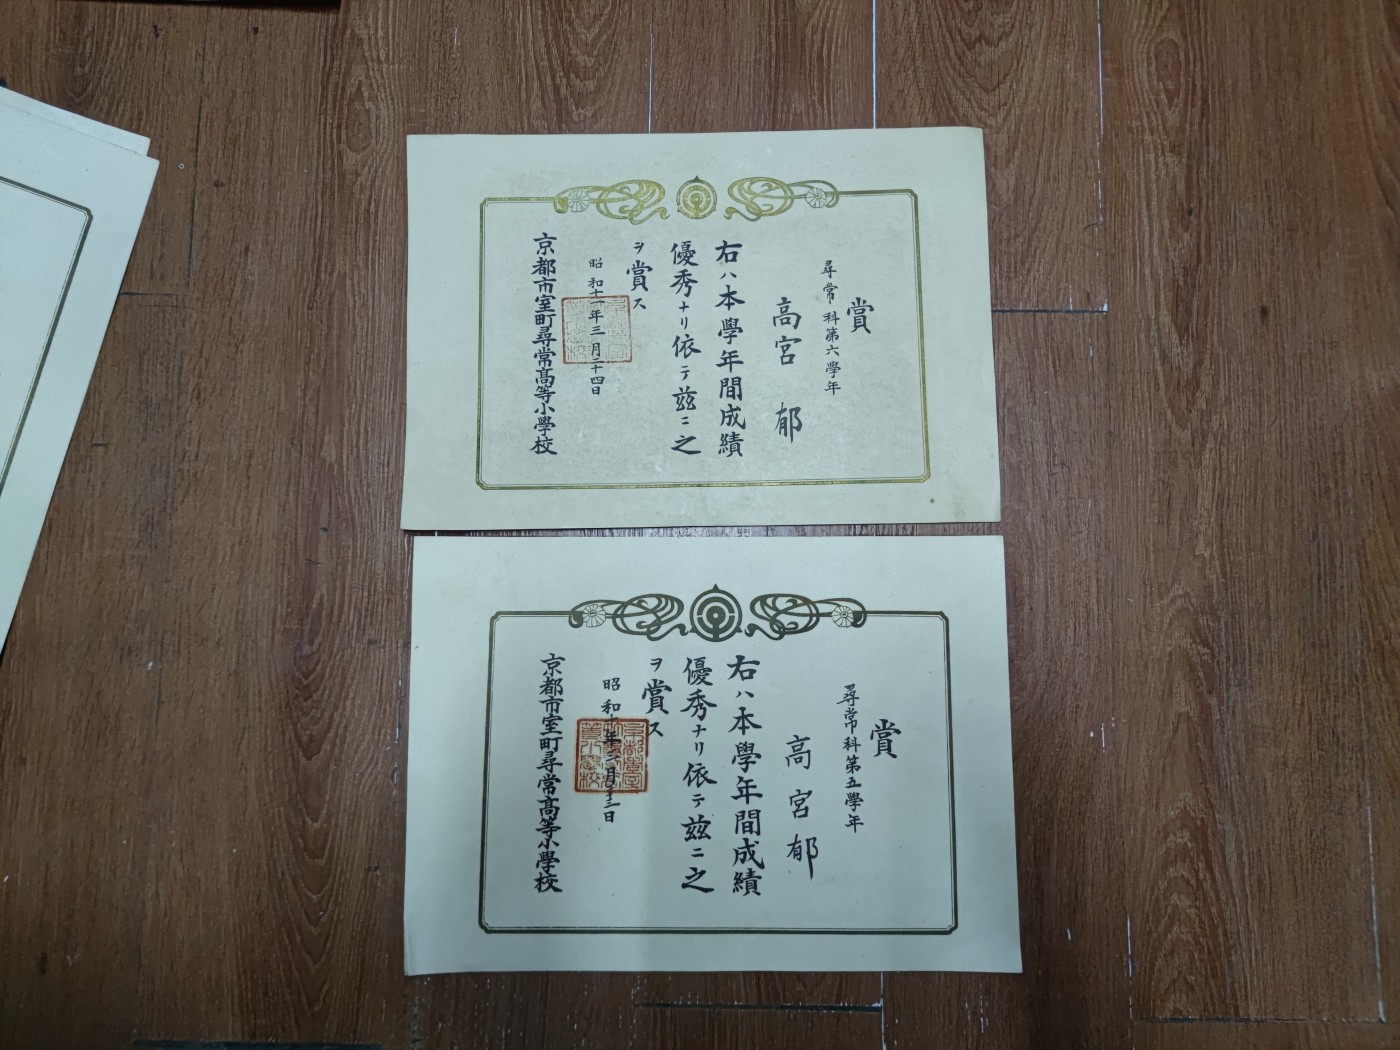 賞
尋常科第六學年
高宮 郁
右ハ本學年間成績
優秀ナリ依テ茲ニ之
ヲ賞ス
昭和十一年三月二十四日
京都市室町尋常高等小學校
賞
尋常科第五學年
高宮郁
右ハ本學年間成績
優秀ナリ依テ茲ニ之
ヲ賞ス
昭和十年三月
日
京都市室町尋常高等小學校